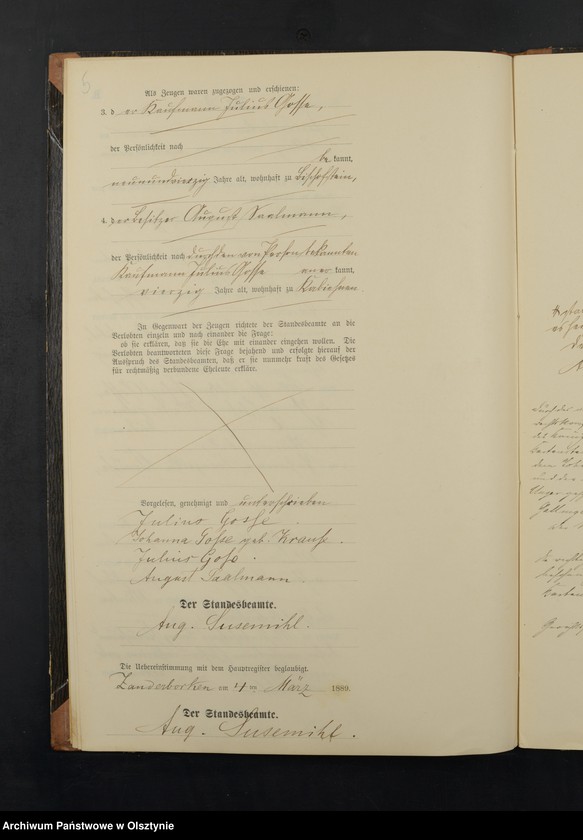 5
Als Zeugen waren zugezogen und erschienen:
3. der Kaufmann Julius Gosse,
der Persönlichkeit nach
be kannt,
neunundvierzig Jahre alt, wohnhaft zu Bischofstein,
4. der Besitzer August Saalmann,
der Persönlichkeit nach durch den von Person bekannten
Kaufmann Julius Gosse aner kannt,
vierzig Jahre alt, wohnhaft zu
In Gegenwart der Zeugen richtete der Standesbeamte an die
Verlobten einzeln und nach einander die Frage:
ob sie erklären, daß sie die Ehe mit einander eingehen wollen. Die
Verlobten beantworteten diese Frage bejahend und erfolgte hierauf der
Ausspruch des Standesbeamten, daß er sie nunmehr kraft des Gesetzes
für rechtmäßig verbundene Eheleute erkläre.
Vorgelesen, genehmigt und unterschrieben
Julius Gosse
Johanna Gosse geb. Krause.
Julius Goss.
August Saalmann
Der Standesbeamte.
Aug. Susemihl.
Die Uebereinstimmung mit dem Hauptregister beglaubigt.
Zandersborken am 4ten März 1889.
Der Standesbeamte.
Aug. Susemihl.
Archiwum Państwowe w Olsztynie